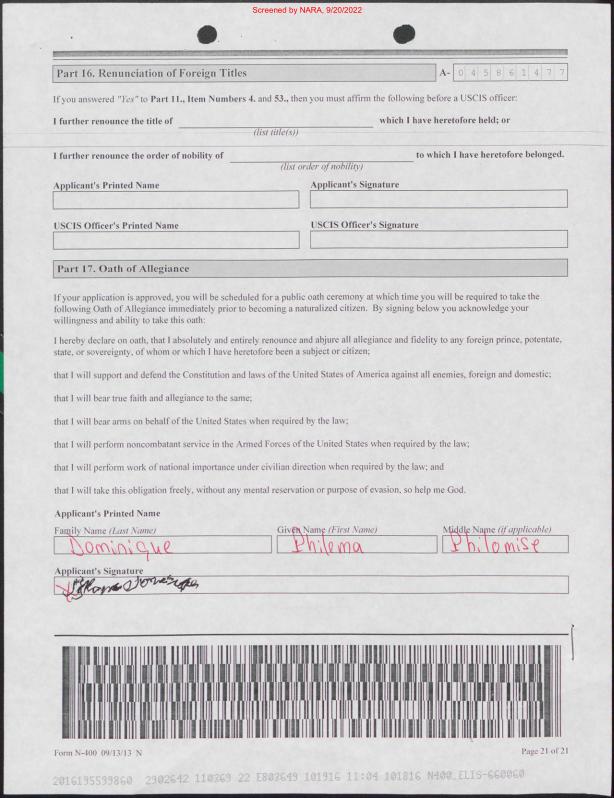 Screened by NARA, 9/20/2022
Part 16. Renunciation of Foreign Titles
A- 0 4 5 8 6 1 4 7 7
If you answered "Yes" to Part 11., Item Numbers 4. and 53., then you must affirm the following before a USCIS officer:
I further renounce the title of which I have heretofore held; or
(list title(s))
I further renounce the order of nobility of to which I have heretofore belonged.
(list order of nobility)
Applicant's Printed Name Applicant's Signature
USCIS Officer's Printed Name USCIS Officer's Signature
Part 17. Oath of Allegiance
If your application is approved, you will be scheduled for a public oath ceremony at which time you will be required to take the
following Oath of Allegiance immediately prior to becoming a naturalized citizen. By signing below you acknowledge your
willingness and ability to take this oath:
I hereby declare on oath, that I absolutely and entirely renounce and abjure all allegiance and fidelity to any foreign prince, potentate,
state, or sovereignty, of whom or which I have heretofore been a subject or citizen;
that I will support and defend the Constitution and laws of the United States of America against all enemies, foreign and domestic;
that I will bear true faith and allegiance to the same;
that I will bear arms on behalf of the United States when required by the law;
that I will perform noncombatant service in the Armed Forces of the United States when required by the law;
that I will perform work of national importance under civilian direction when required by the law; and
that I will take this obligation freely, without any mental reservation or purpose of evasion, so help me God.
Applicant's Printed Name
Family Name (Last Name) Given Name (First Name) Middle Name (if applicable)
Dominique Philema Philomise
Applicant's Signature
Form N-400 09/13/13 N Page 21 of 21
2016195599860 2902642 110269 22 E802649 101916 11:04 101816 N400_ELIS-660060